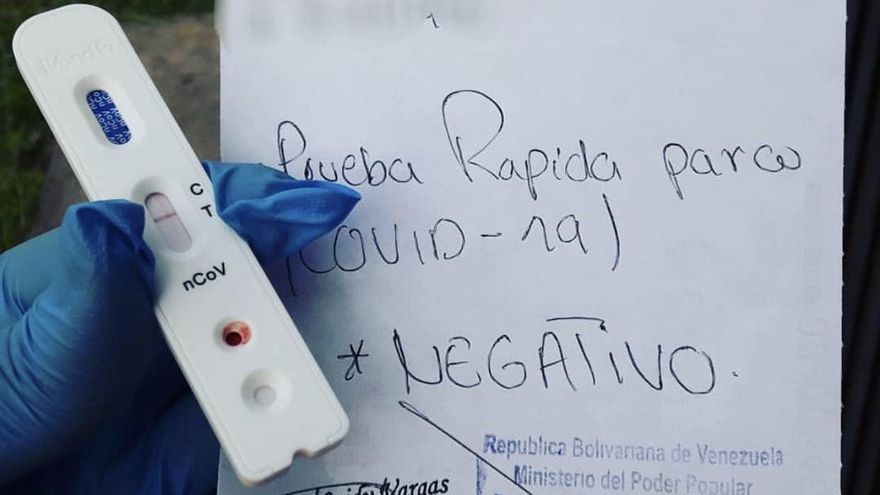 C
T
nCoV
Prueba Rapida para
(COVID-19)
* NEGATIVO.
Republica Bolivariana de Venezuela
Ministerio del Poder Popular
Vargas